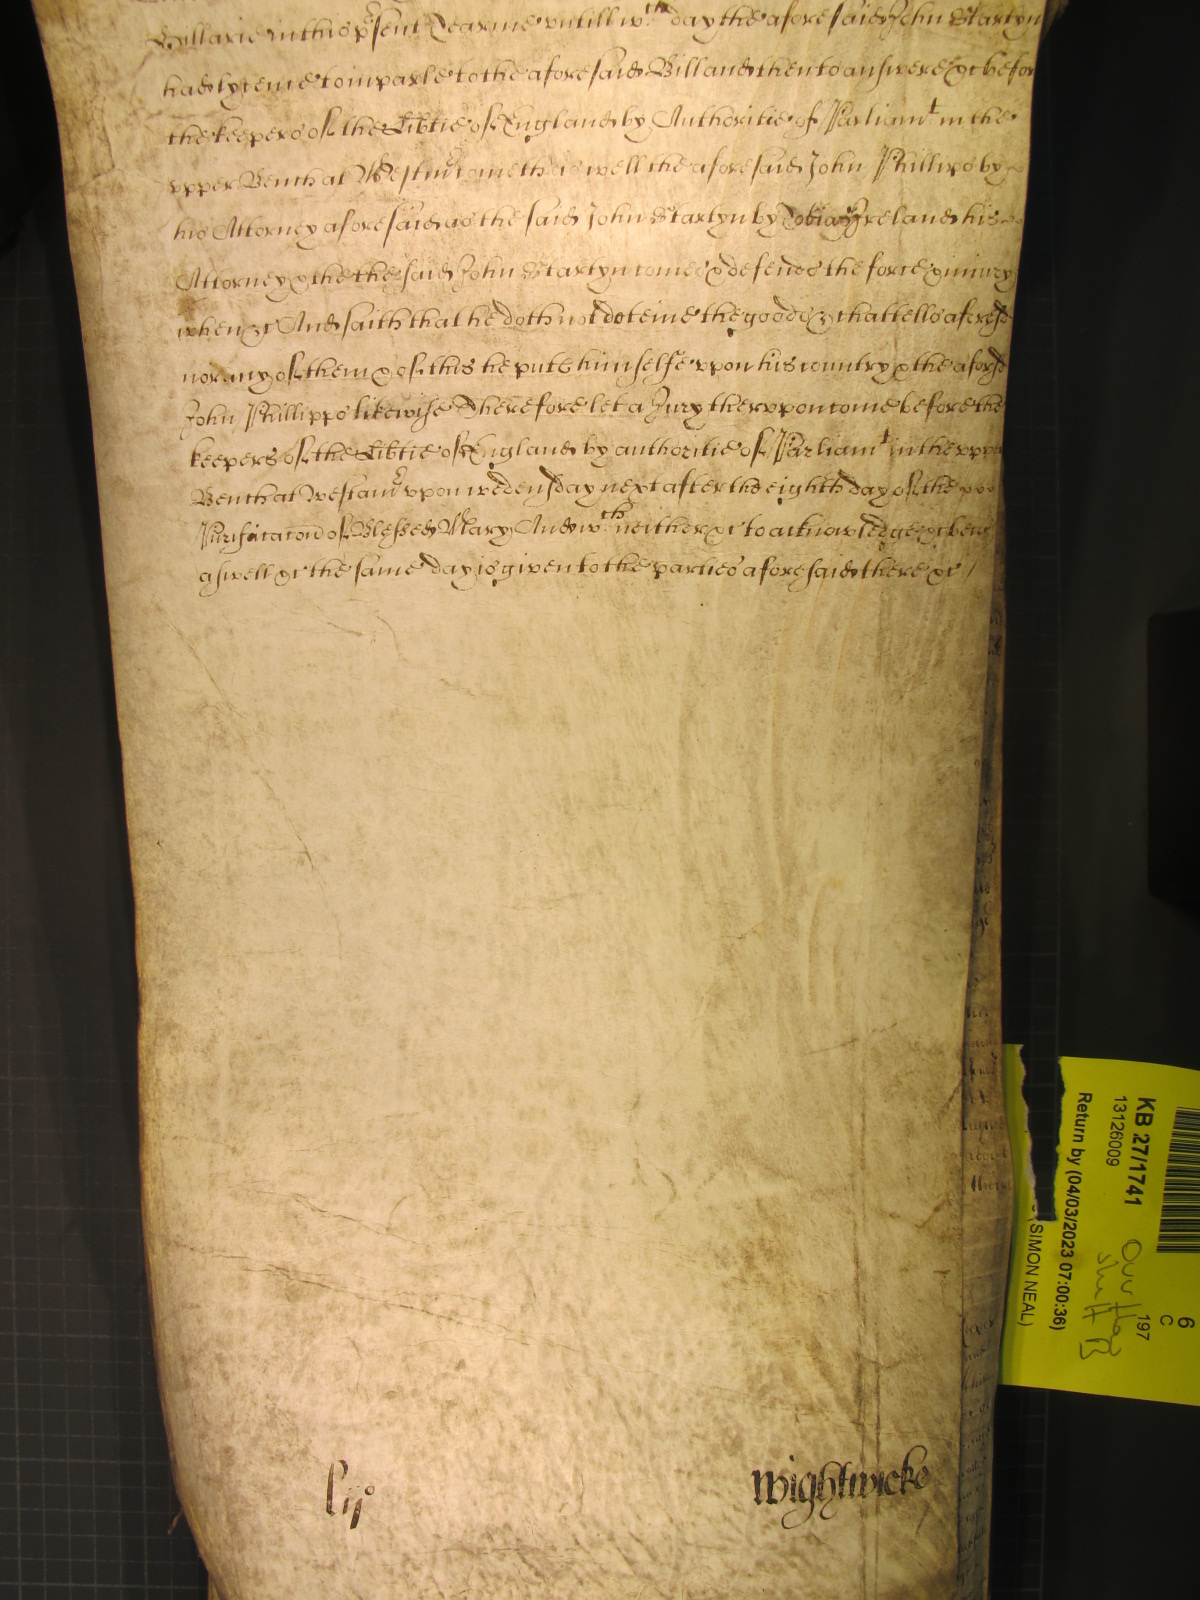 Hillarie in this p^rsent Tearme untill w^ch day the aforesaid John Startyn
had lycence to imparle to the aforesaid Bill and then to answere &c befor
the keepers of the Lib̄tie of England by Authoritie of Parliam^t in the
upper Bench at Westm^r cometh aswell the aforesaid John Phillipps by
his Attorney aforesaid as the said John Startyn by Tobias Ireland his
Attorney & the the said John Startyn comes & defends the force & iniury
when &c And saith that he doth not deteine the goods & chattells aforesd
nor any of them & of this he puts himselfe uppon his country & the aforsd
John Phillipps likewise Therefore let a Jury theruppon come before the
keepers of the Lib̄tie of England by authoritie of Parliam^t in the upper
Bench at Westm^r uppon wedensday next after the eighth day of the
Purificac̄on of Blessed Mary And w^th neither &c to acknowledge &c becs
aswell &c the same day is given to the parties aforesaid there &c /
lij^o
Wightwicke
KB 27/1741
13126009
Return by (04/03/2023 07:00:36)
(SIMON NEAL)
197
6
C